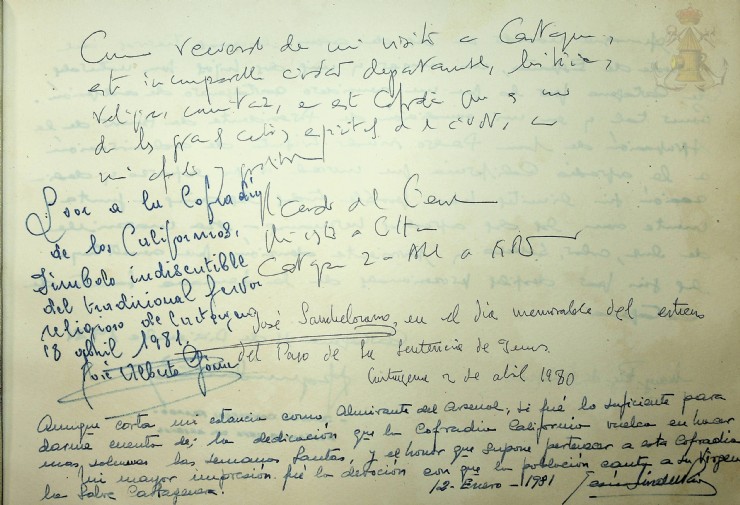 Como recuerdo de mi visita a Cartagena,
esta incomparable ciudad departamental,
religiosa, en esta Cofradía que es uno
de los grandes
mi afecto y gratitud
Ricardo de la Cierva
Ministro de Cultura
Cartagena 2-Abril
Loor a la Cofradía
de los Californios,
Símbolo indiscutible
del tradicional fervor
religioso de Cartagena
18 abril 1981.
José Alberto
José Sanchelozano, en el día memorable del estreno
del Paso de la Sentencia de Jesús.
Cartagena 2 de abril 1980
Aunque corta mi estancia como Almirante del Arsenal, si fué lo suficiente para
darme cuenta de: la dedicación que la Cofradía California vuelca en hacer
mas solemnes las semanas Santas, y el honor que supone pertenecer a esta Cofradia
mi mayor impresión fué la devoción con que la población canta a su Virgen
la Salve Cartagenera.
12-Enero-1981